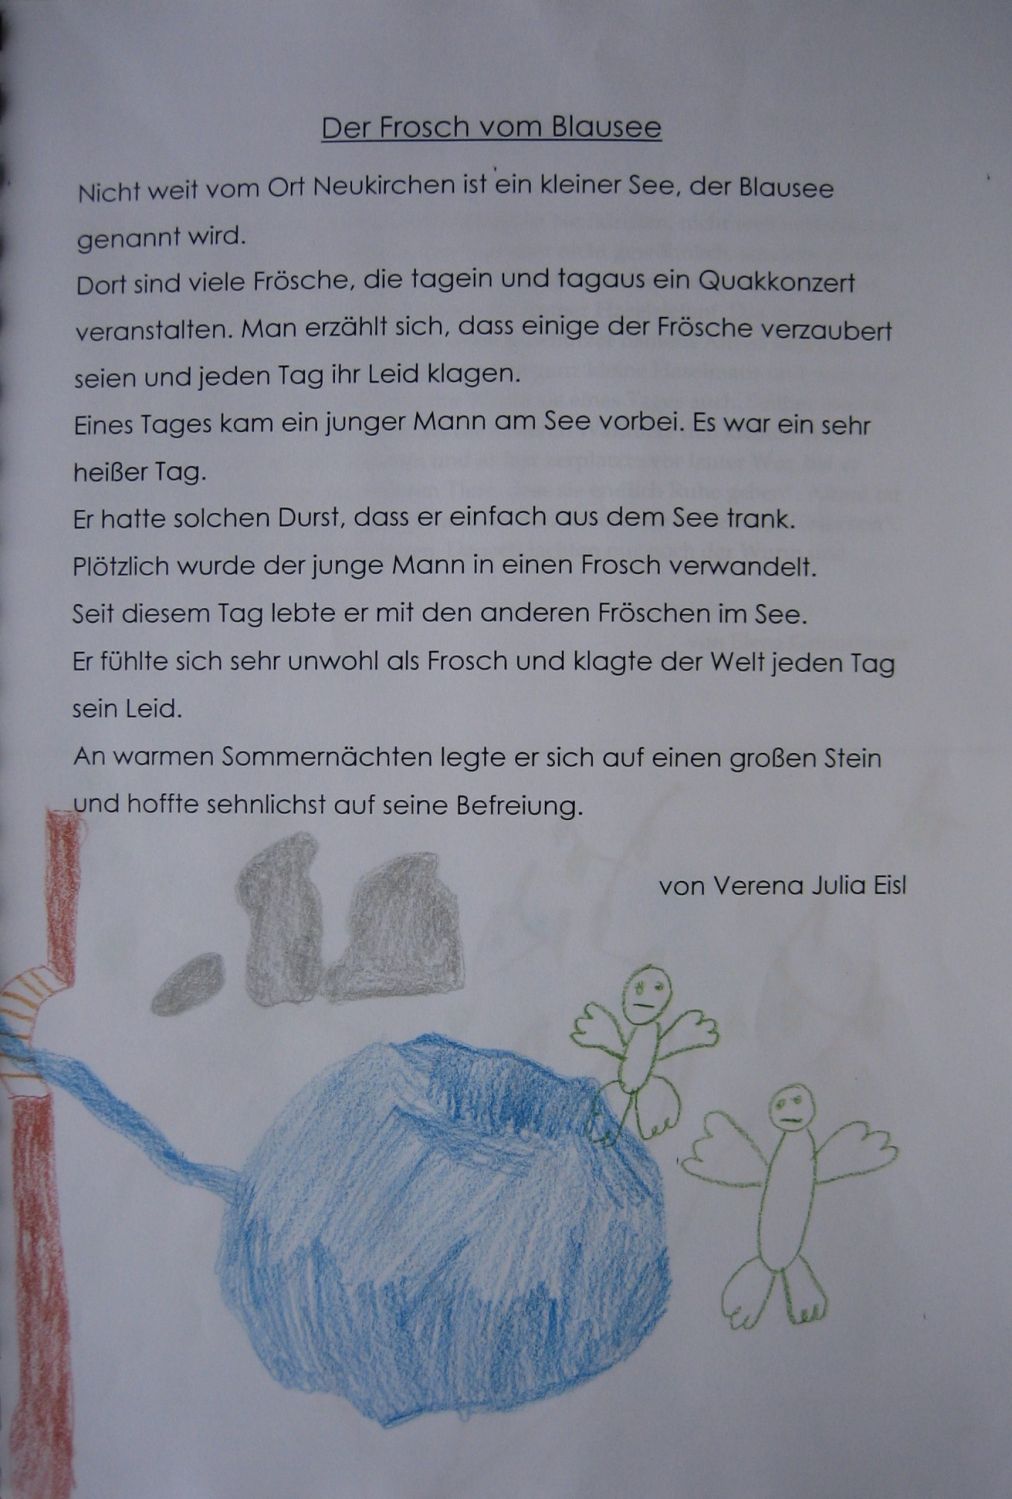 Der Frosch vom Blausee
Nicht weit vom Ort Neukirchen ist ein kleiner See, der Blausee
genannt wird.
Dort sind viele Frösche, die tagein und tagaus ein Quakkonzert
veranstalten. Man erzählt sich, dass einige der Frösche verzaubert
seien und jeden Tag ihr Leid klagen.
Eines Tages kam ein junger Mann am See vorbei. Es war ein sehr
heißer Tag.
Er hatte solchen Durst, dass er einfach aus dem See trank.
Plötzlich wurde der junge Mann in einen Frosch verwandelt.
Seit diesem Tag lebte er mit den anderen Fröschen im See.
Er fühlte sich sehr unwohl als Frosch und klagte der Welt jeden Tag
sein Leid.
An warmen Sommernächten legte er sich auf einen großen Stein
und hoffte sehnlichst auf seine Befreiung.
von Verena Julia Eisl